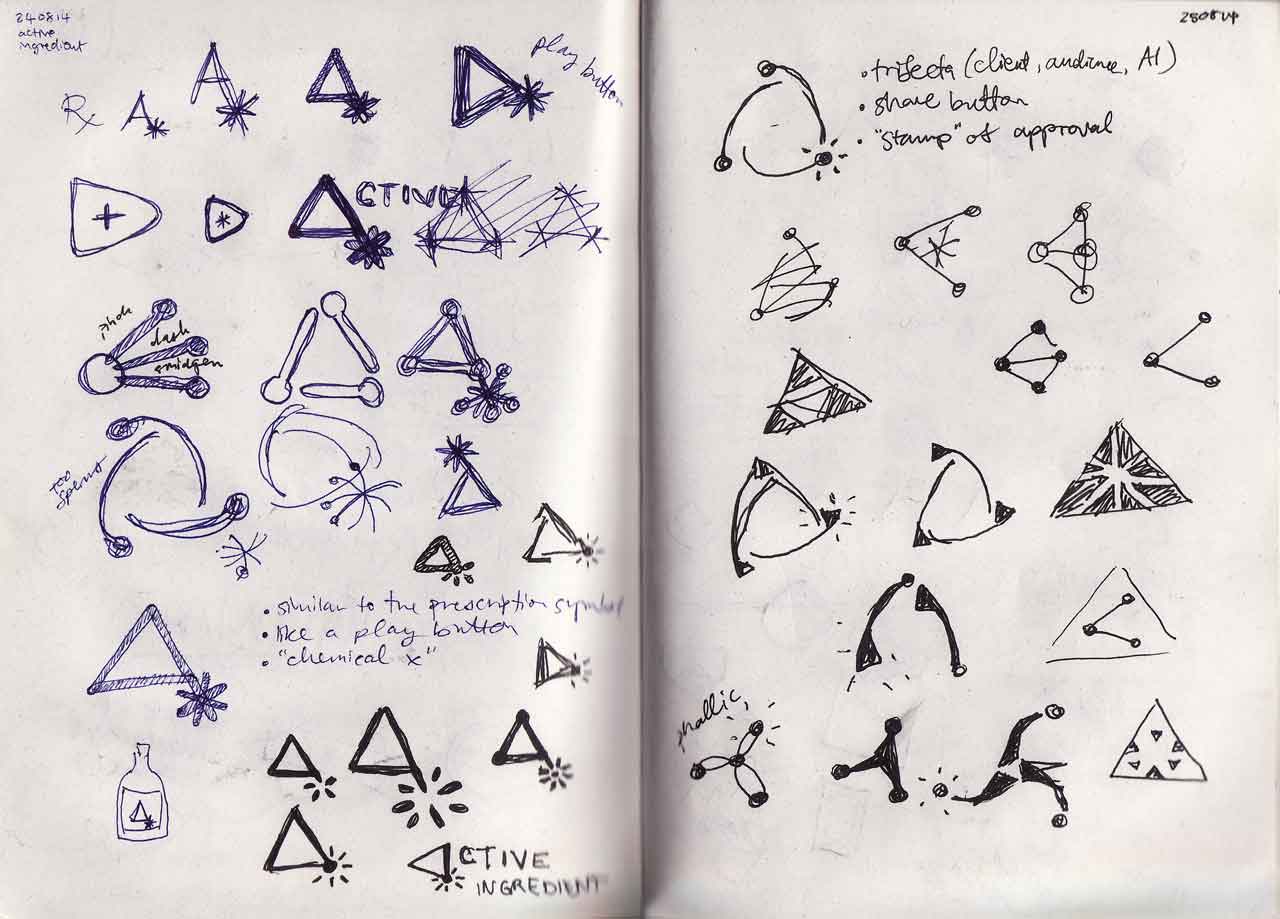 240814
active
ingredient
Rx
A*
play button
CTIVE
dash
too
sperms
• similar to the prescription symbol
• like a play button
• "chemical x"
CTIVE
INGREDIENT
280814
• trifecta (client, audience, AI)
• share button
• "stamp" of approval
phallic,